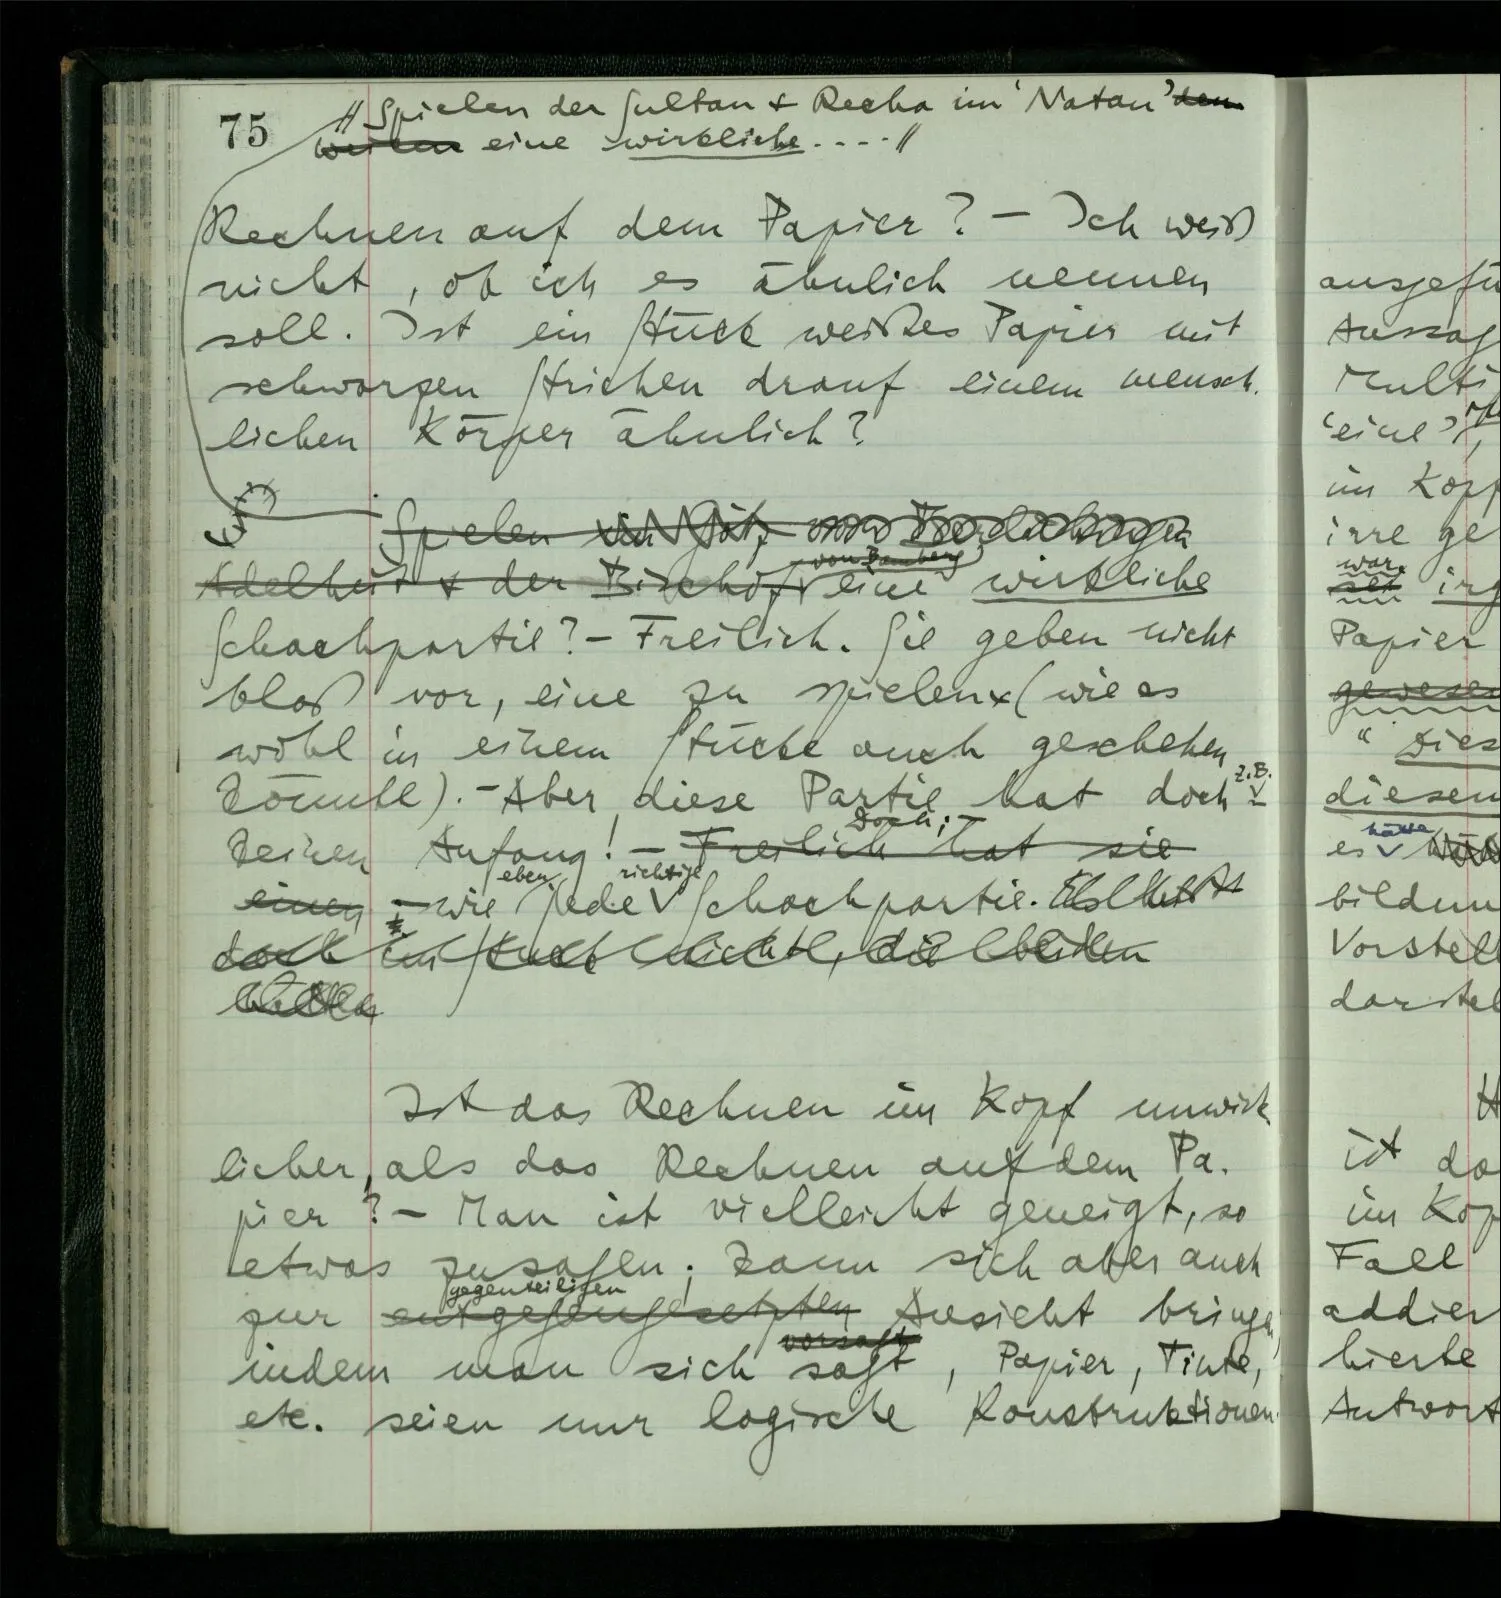 75
"Spielen der Sultan & Recha im 'Natan' dem
weilen eine wirkliche...."
Rechnen auf dem Papier? – Ich weiß
nicht, ob ich es ähnlich nennen
soll. Ist ein Stück weißes Papier mit
schwarzen Strichen drauf einem mensch-
lichen Körper ähnlich?
Spielen im Götz von Berlichingen
von Bamberg
Adelheid & der Bischof eine wirkliche
Schachpartie? – Freilich. Sie geben nicht
bloß vor, eine zu spielen (wie es
wohl in einem Stücke auch geschehen
könnte). – Aber diese Partie hat doch z.B.
keinen Anfang! – Freilich hat sie
Doch; –
einen – wie jede Schachpartie.
eben richtige
doch im Stück nicht, die beiden
Ist das Rechnen im Kopf unwirk
licher, als das Rechnen auf dem Pa-
pier? – Man ist vielleicht geneigt, so
etwas zu sagen; kann sich aber auch
gegenteiligen
zur entgegengesetzten Ansicht bringen,
vorsagt
indem man sich sagt, Papier, Tinte,
etc. seien nur logische Konstruktionen
Papier
diesen
es hätte
im Kopf
irre ge
war
ist
Fall
Antwort